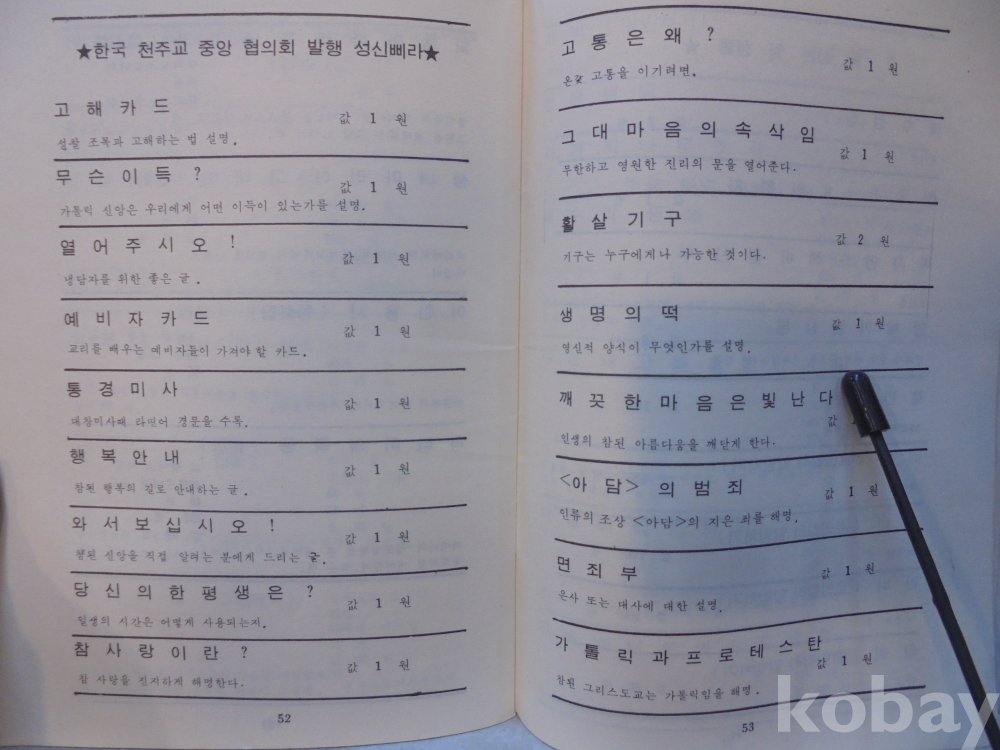 ★한국 천주교 중앙 협의회 발행 성신삐라★
고해카드
값 1 원
성찰 조목과 고해하는 법 설명.
무슨이득?
값 1 원
가톨릭 신앙은 우리에게 어떤 이득이 있는가를 설명.
열어주시오!
값 1 원
냉담자를 위한 좋은 글.
예비자카드
값 1 원
교리를 배우는 예비자들이 가져야 할 카드.
통경미사
값 1 원
대창미사때 라띤어 경문을 수록.
행복안내
값 1 원
참된 행복의 길로 안내하는 글.
와서보십시오!
값 1 원
참된 신앙을 직접 알려는 분에게 드리는 글.
당신의한평생은?
값 1 원
일생의 시간은 어떻게 사용되는지.
참사랑이란?
값 1 원
참 사랑을 진지하게 해명한다.
52
고통은왜?
값 1 원
온갖 고통을 이기려면.
그대마음의속삭임
값 1 원
무한하고 영원한 진리의 문을 열어준다.
활살기구
값 2 원
기구는 누구에게나 가능한 것이다.
생명의떡
값 1 원
영신적 양식이 무엇인가를 설명.
깨끗한마음은빛난다
값
인생의 참된 아름다움을 깨닫게 한다.
<아담>의범죄
값 1 원
인류의 조상 <아담>의 지은 죄를 해명.
면죄부
값 1 원
은사 또는 대사에 대한 설명.
가톨릭과프로테스탄
값 1 원
참된 그리스도교는 가톨릭임을 해명.
53
kobay